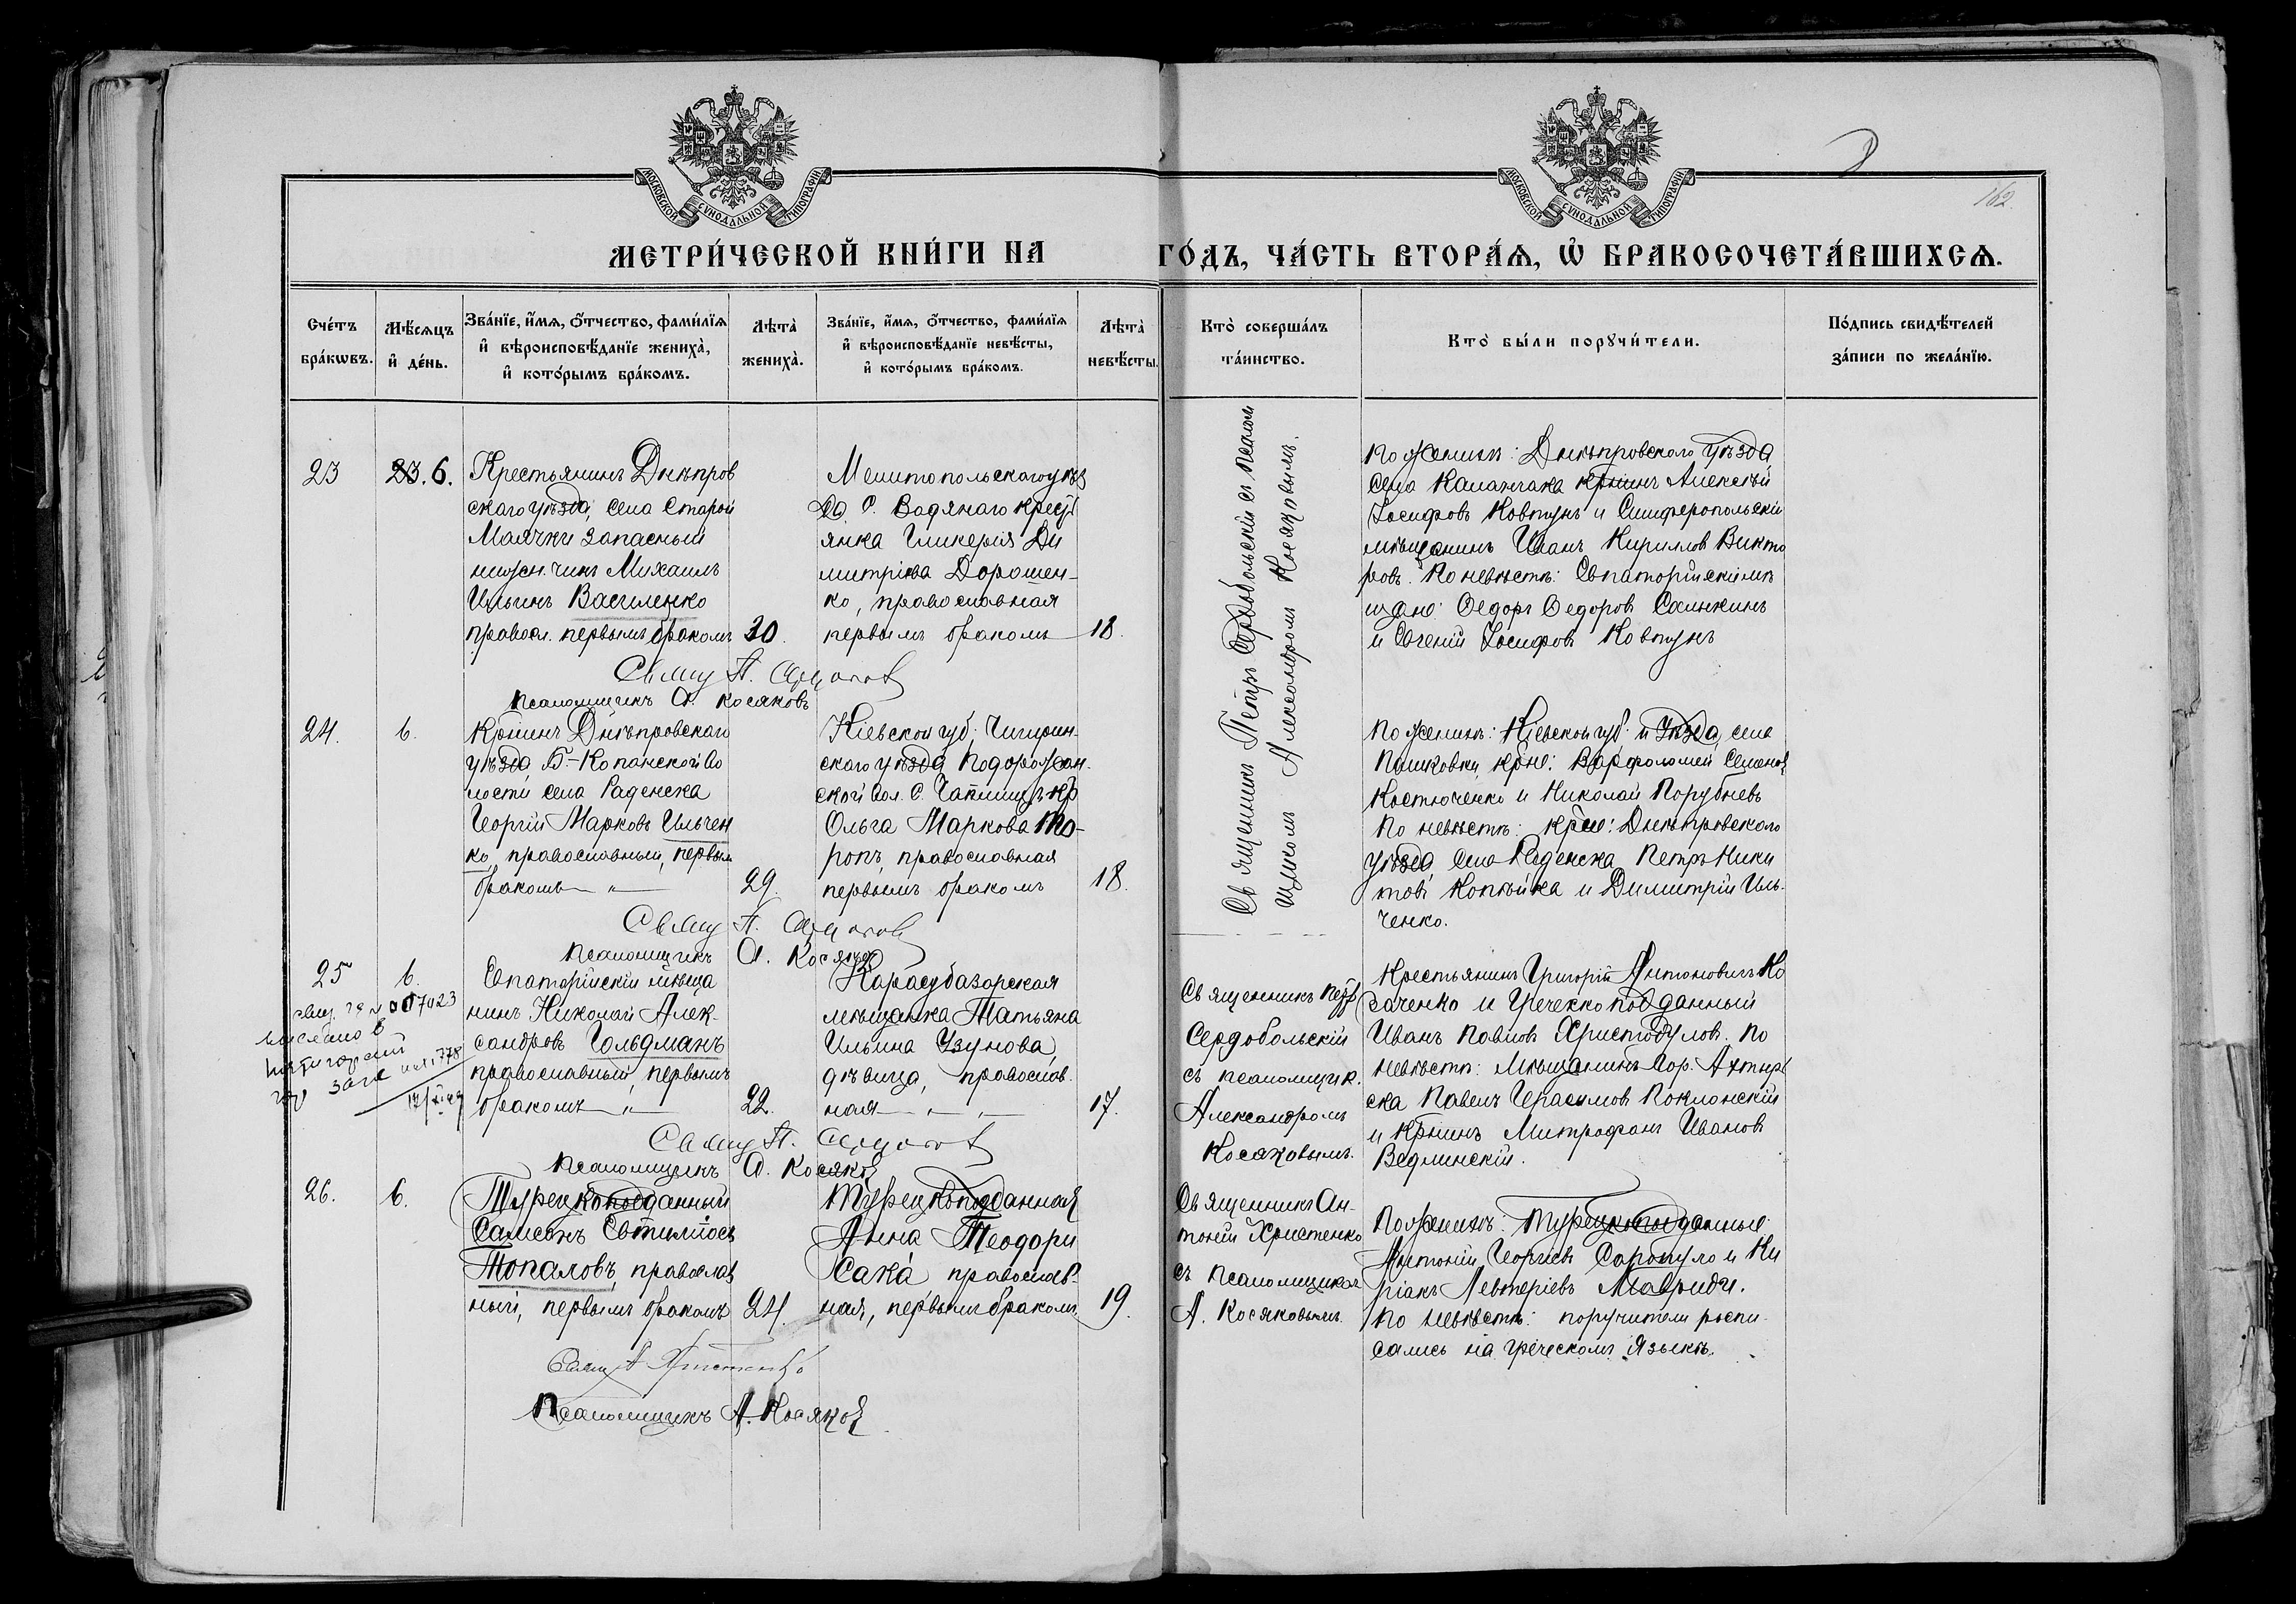 МОСКОВСКОЙ СУНОДАЛЬНОЙ ТИПОГРАФІИ
МОСКОВСКОЙ СУНОДАЛЬНОЙ ТИПОГРАФІИ
162.
МЕТРИ́ЧЕСКОЙ КНИ́ГИ НА ГО́ДЪ, ЧА́СТЬ ВТОРА́Ѧ, Ѽ БРАКОСОЧЕТА́ВШИХСѦ.
Сче́тъ бра́кѡвъ.
Мѣ́сѧцъ и҆ де́нь.
Зва́нїе, и҆́мѧ, ѻ҆́тчество, фами́лїѧ
и҆ вѣроисповѣ́данїе жениха̀,
и҆ кото́рымъ бра́комъ.
Лѣта̀ жениха̀.
Зва́нїе, и҆́мѧ, ѻ҆́тчество, фами́лїѧ
и҆ вѣроисповѣ́данїе невѣ́сты,
и҆ кото́рымъ бра́комъ.
Лѣта̀ невѣ́сты.
Кто̀ соверша́лъ
та́инство.
Кто̀ бы́ли порꙋчи́тели.
По́дпись свидѣ́телей
за́писи по жела́нїю.
23
23. 6.
Крестьянинъ Днѣпров
скаго уѣзда, села Старой
Маячки запасный
нижн. чинъ Михаилъ
Ильинъ Василенко
правосл. первымъ бракомъ
30.
Мелитопольскаго уѣз
да С. Водянаго крест
янка Гликерія Ди
митріева Дорошен-
ко, православная
первымъ бракомъ
18.
Священникъ Петръ Сердобольскій съ псалом
щикомъ Александромъ Косяковымъ.
По женихѣ: Днѣпровскаго уѣзда
села Каланчака крнинъ Алексѣй
Іосифовъ Ковтунъ и Симферопольскій
мѣщанинъ Иванъ Кирилловъ Викто
ровъ. По невѣстѣ: Евпаторійскіе мѣ
щане: Ѳедоръ Ѳедоровъ Салыкинъ
и Евгеній Іосифовъ Ковтунъ
Псаломщикъ А. Косяковъ
24.
6.
Крнинъ Днѣпровскаго
уѣзда Б.-Копанской во
лости села Раденска
Георгій Марковъ Ильчен
ко, православный, первым
бракомъ — " —
29.
Кіевской губ. Чигирин-
скаго уѣзда Подорожан-
ской вол. с. кр
Ольга Маркова То-
ропъ, православная
первымъ бракомъ
18.
По женихѣ: Кіевской губ. и уѣзда, села
крне: Варфоломей Семенов
Костюченко и Николай
По невѣстѣ: крне: Днѣпровскаго
уѣзда, села Раденска Петръ Ники
товъ Копѣйка и Димитрій Иль-
ченко.
Псаломщикъ А. Косяков
25
6.
007023
Евпаторійскій мѣща
нинъ Николай Алек-
сандровъ Гольдманъ
православный, первымъ
бракомъ — " —
22.
Карасубазарская
мѣщанка Татьяна
Ильина Узунова,
дѣвица, православ-
ная — " — " —
17.
Священникъ Петр
Сердобольскій
съ псаломщик.
Александромъ
Косяковымъ.
Крестьянинъ Григорій Антоновичъ Ко
заченко и Греческоподданный
Иванъ Павловъ Христодуловъ. По
невѣстѣ: мѣщанинъ гор. Ахтыр
ска Павелъ Герасимовъ Поклонскій
и крнинъ Митрофанъ Ивановъ
Ведлинскій.
Псаломщикъ А. Косяков
26.
6.
Турецкоподданный
Самсонъ
Топаловъ, православ
ный, первымъ бракомъ
24.
Турецкоподданная
Анна Теодори
Сака православ-
ная, первымъ бракомъ.
19.
Священникъ Ан-
тоній Христенко
съ псаломщикомъ
А. Косяковымъ.
По женихѣ: Турецкоподданные
Антоній Георгіевъ и Ки
ріакъ Левтеріевъ Мавриди.
По невѣстѣ: поручители распи-
сались на греческомъ языкѣ.
Псаломщикъ А. Косяков